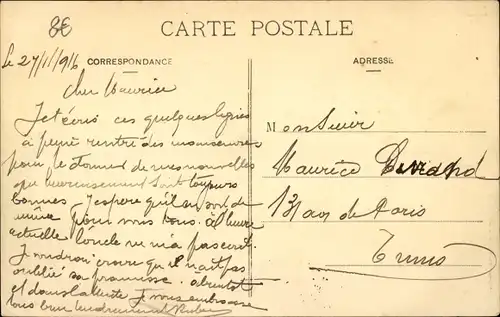 8€
CARTE POSTALE
Le 27/1/1916
CORRESPONDANCE
ADRESSE
Cher Maurice
Je t'écris ces quelques lignes
à peine rentré des manoeuvres
pour te donner de mes nouvelles
que heureusement sont toujours
bonnes. J'espère qu'il en soit de
même pour vous tous. à l'heure
actuelle l'oncle ne m'a pas écrit.
Je voudrai croire qu'il n'ait pas
oublié sa promesse. a bientot
et dans l'attente Je vous embrasse
tous bien tendrement
Monsieur
Maurice
13 de Paris
Tunis